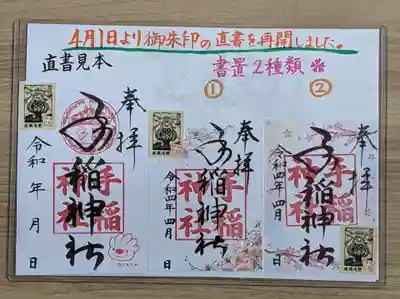 4月1日より御朱印の直書を再開しました。
直書見本
書置2種類
①
②
奉拝
手稲神社
手稲神社
令和 年 月 日
奉拝
手稲神社
手稲神社
令和四年四月 日
奉拝
手稲神社
手稲神社
令和四年四月 日